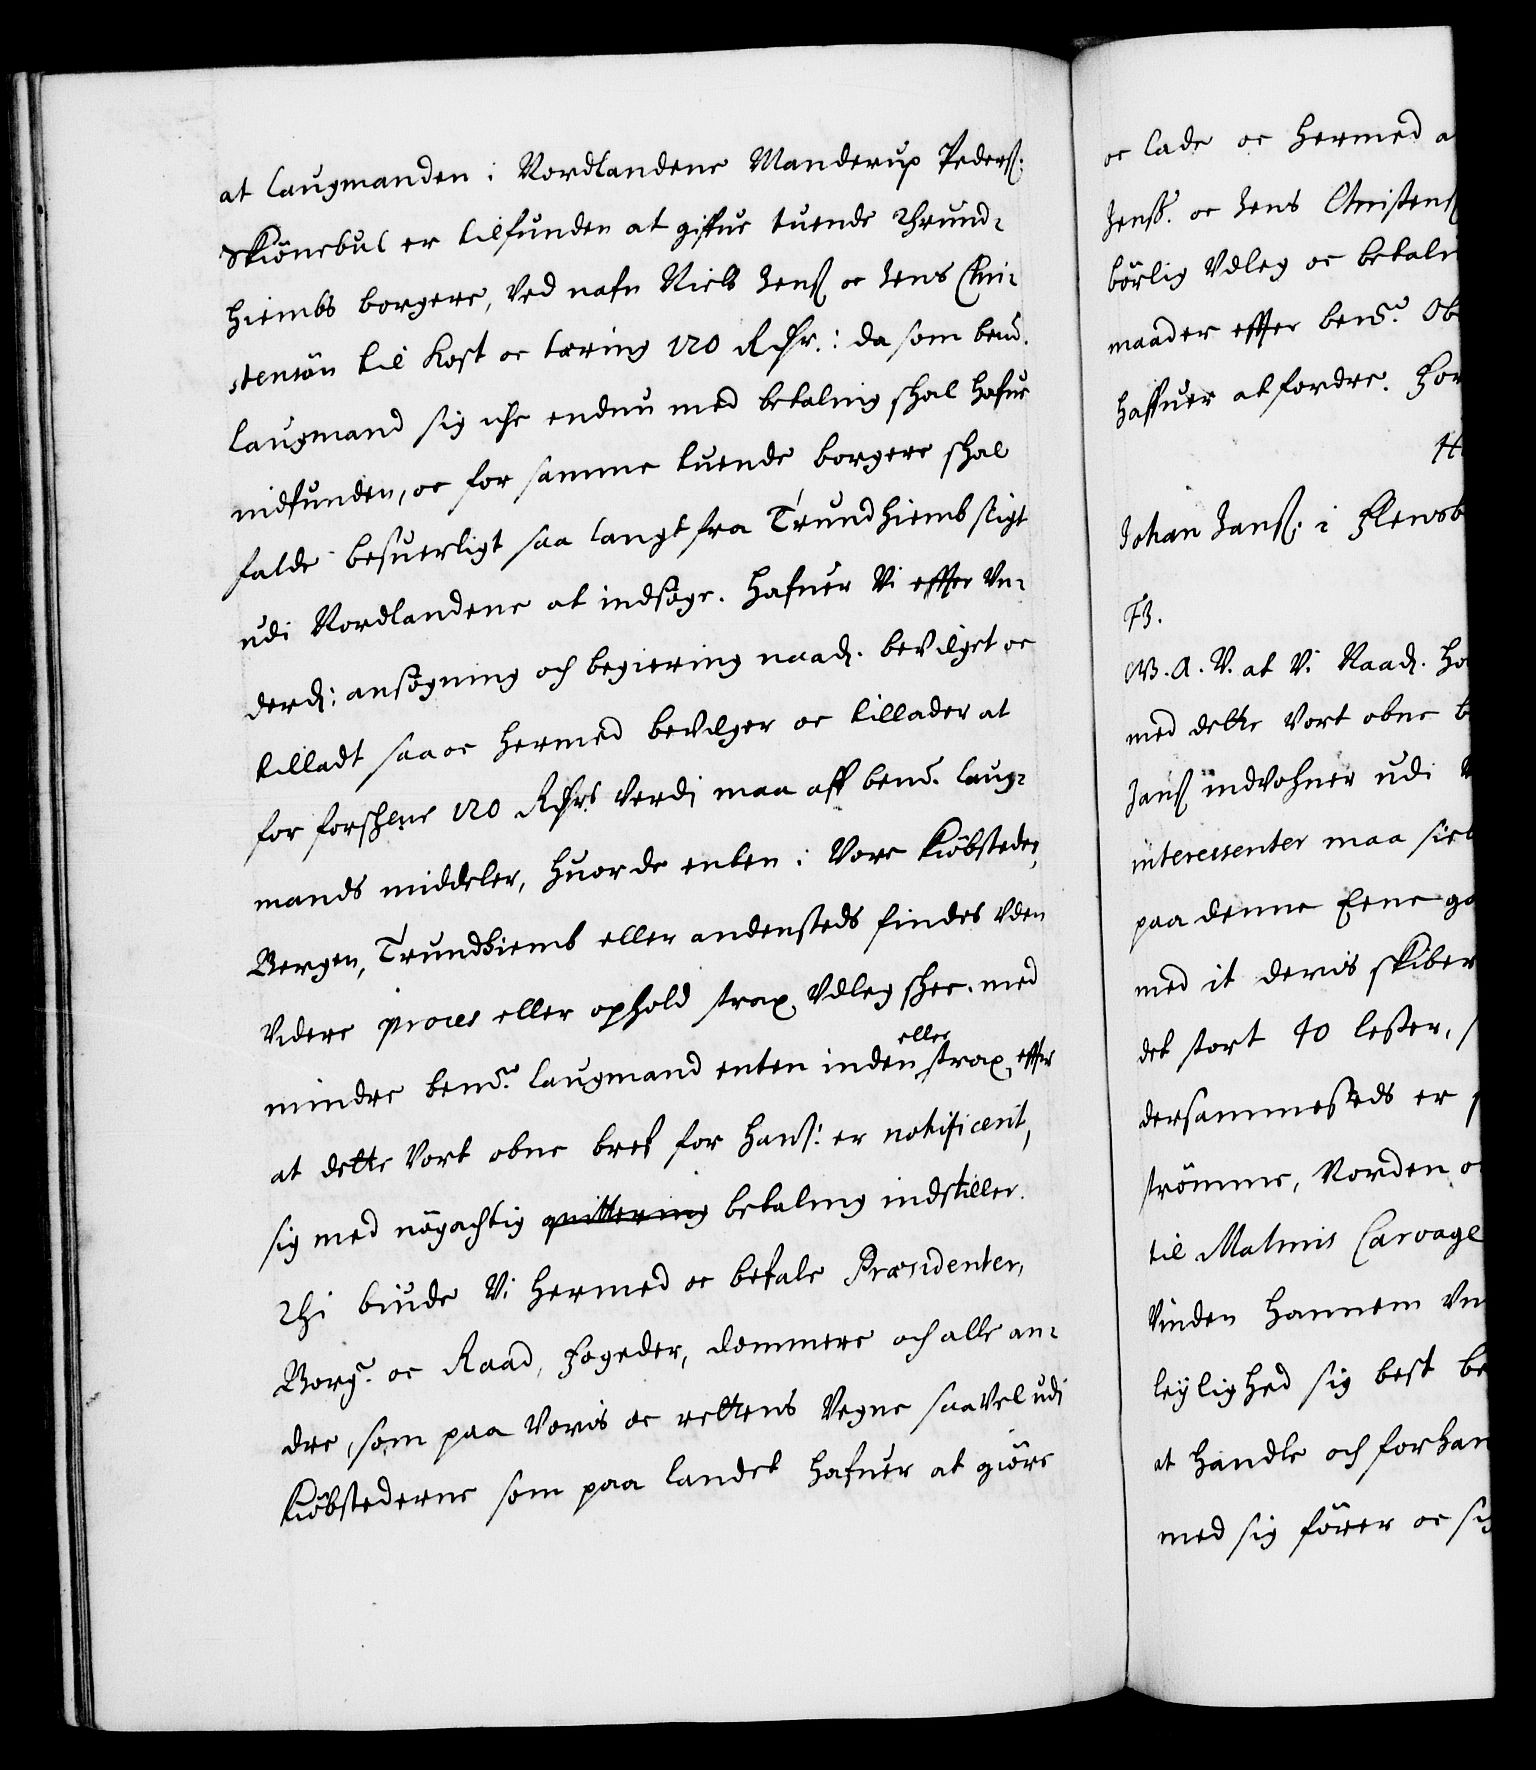 at laugmanden i Nordlandene Manderup Peders:
Skiönebul er tilfunden at giffue tuende Thrund-
hiembs borgere, ved nafn Niels Jens oc Jens Chri-
stensön til Kost oc tæring 120 Rdr.: da som bend.
laugmand sig iche endnu med betaling shal hafue
indfunden, oc for samme tuende borgere shal
falde besuerligt saa langt fra Trundhiemb sligt
udi Nordlandene at indsöge. Hafuer Vi effter Un-
derd: ansögning och begiering naad. bevilget oc
tilladt saa oc hermed bevilger oc tillader at
for forschne 120 Rdrs verdj maa aff bend. laug-
mands middeler, huor de enten i Vore kiöbsteder,
Bergen, Trundhiemb eller andensteds findes uden
videre proces eller ophold strax udleg shee. med
mindre bend. laugmand enten inden eller strax effter
at dette Vort obne bref for hans: er notificerit,
sig med nögachtig quittering betaling indstiller.
Thi biude Vi hermed oc befale Præsidenter,
Borg. oc Raad, fogeder, dommere och alle an-
dre, som paa Voris oc rettens Vegne saavel udi
kiöbstederne som paa landet hafuer at giöre
oc lade oc hermed a
Jenss. oc Jens Christens
börlig Udleg oc betaln
maader effter bend. Ob
haffuer at fordre. For
H
Johan Jans. i Flensb
F3.
G. A. V. at Vi Naad. ha
med dette Vort obne b
Jans indvohner udi
interessenter maa sie
paa denne Eene ga
med it deris skiber
det stort 40 lester, s
dersammesteds er
strömme, Norden o
til Malmis Carvage
Vinden hannem Un
leÿlighed sig best be
at handle och forhan
med sig förer oc si